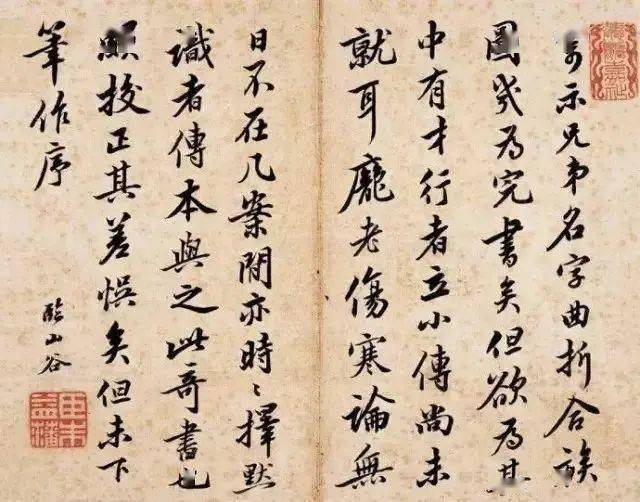 示兄弟名字曲折合族
圖幾為完書矣但欲為其
中有才行者立小傳尚未
就耳龐老傷寒論無
日不在几案間亦時〻擇默
識者傳本與之此奇書也
校正其差悞矣但未下
筆作序
臨山谷